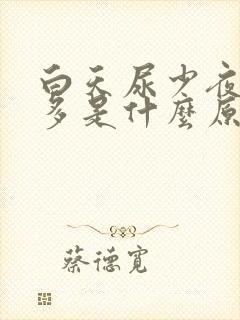 白天尿少夜
多是什麼原
蔡德寬